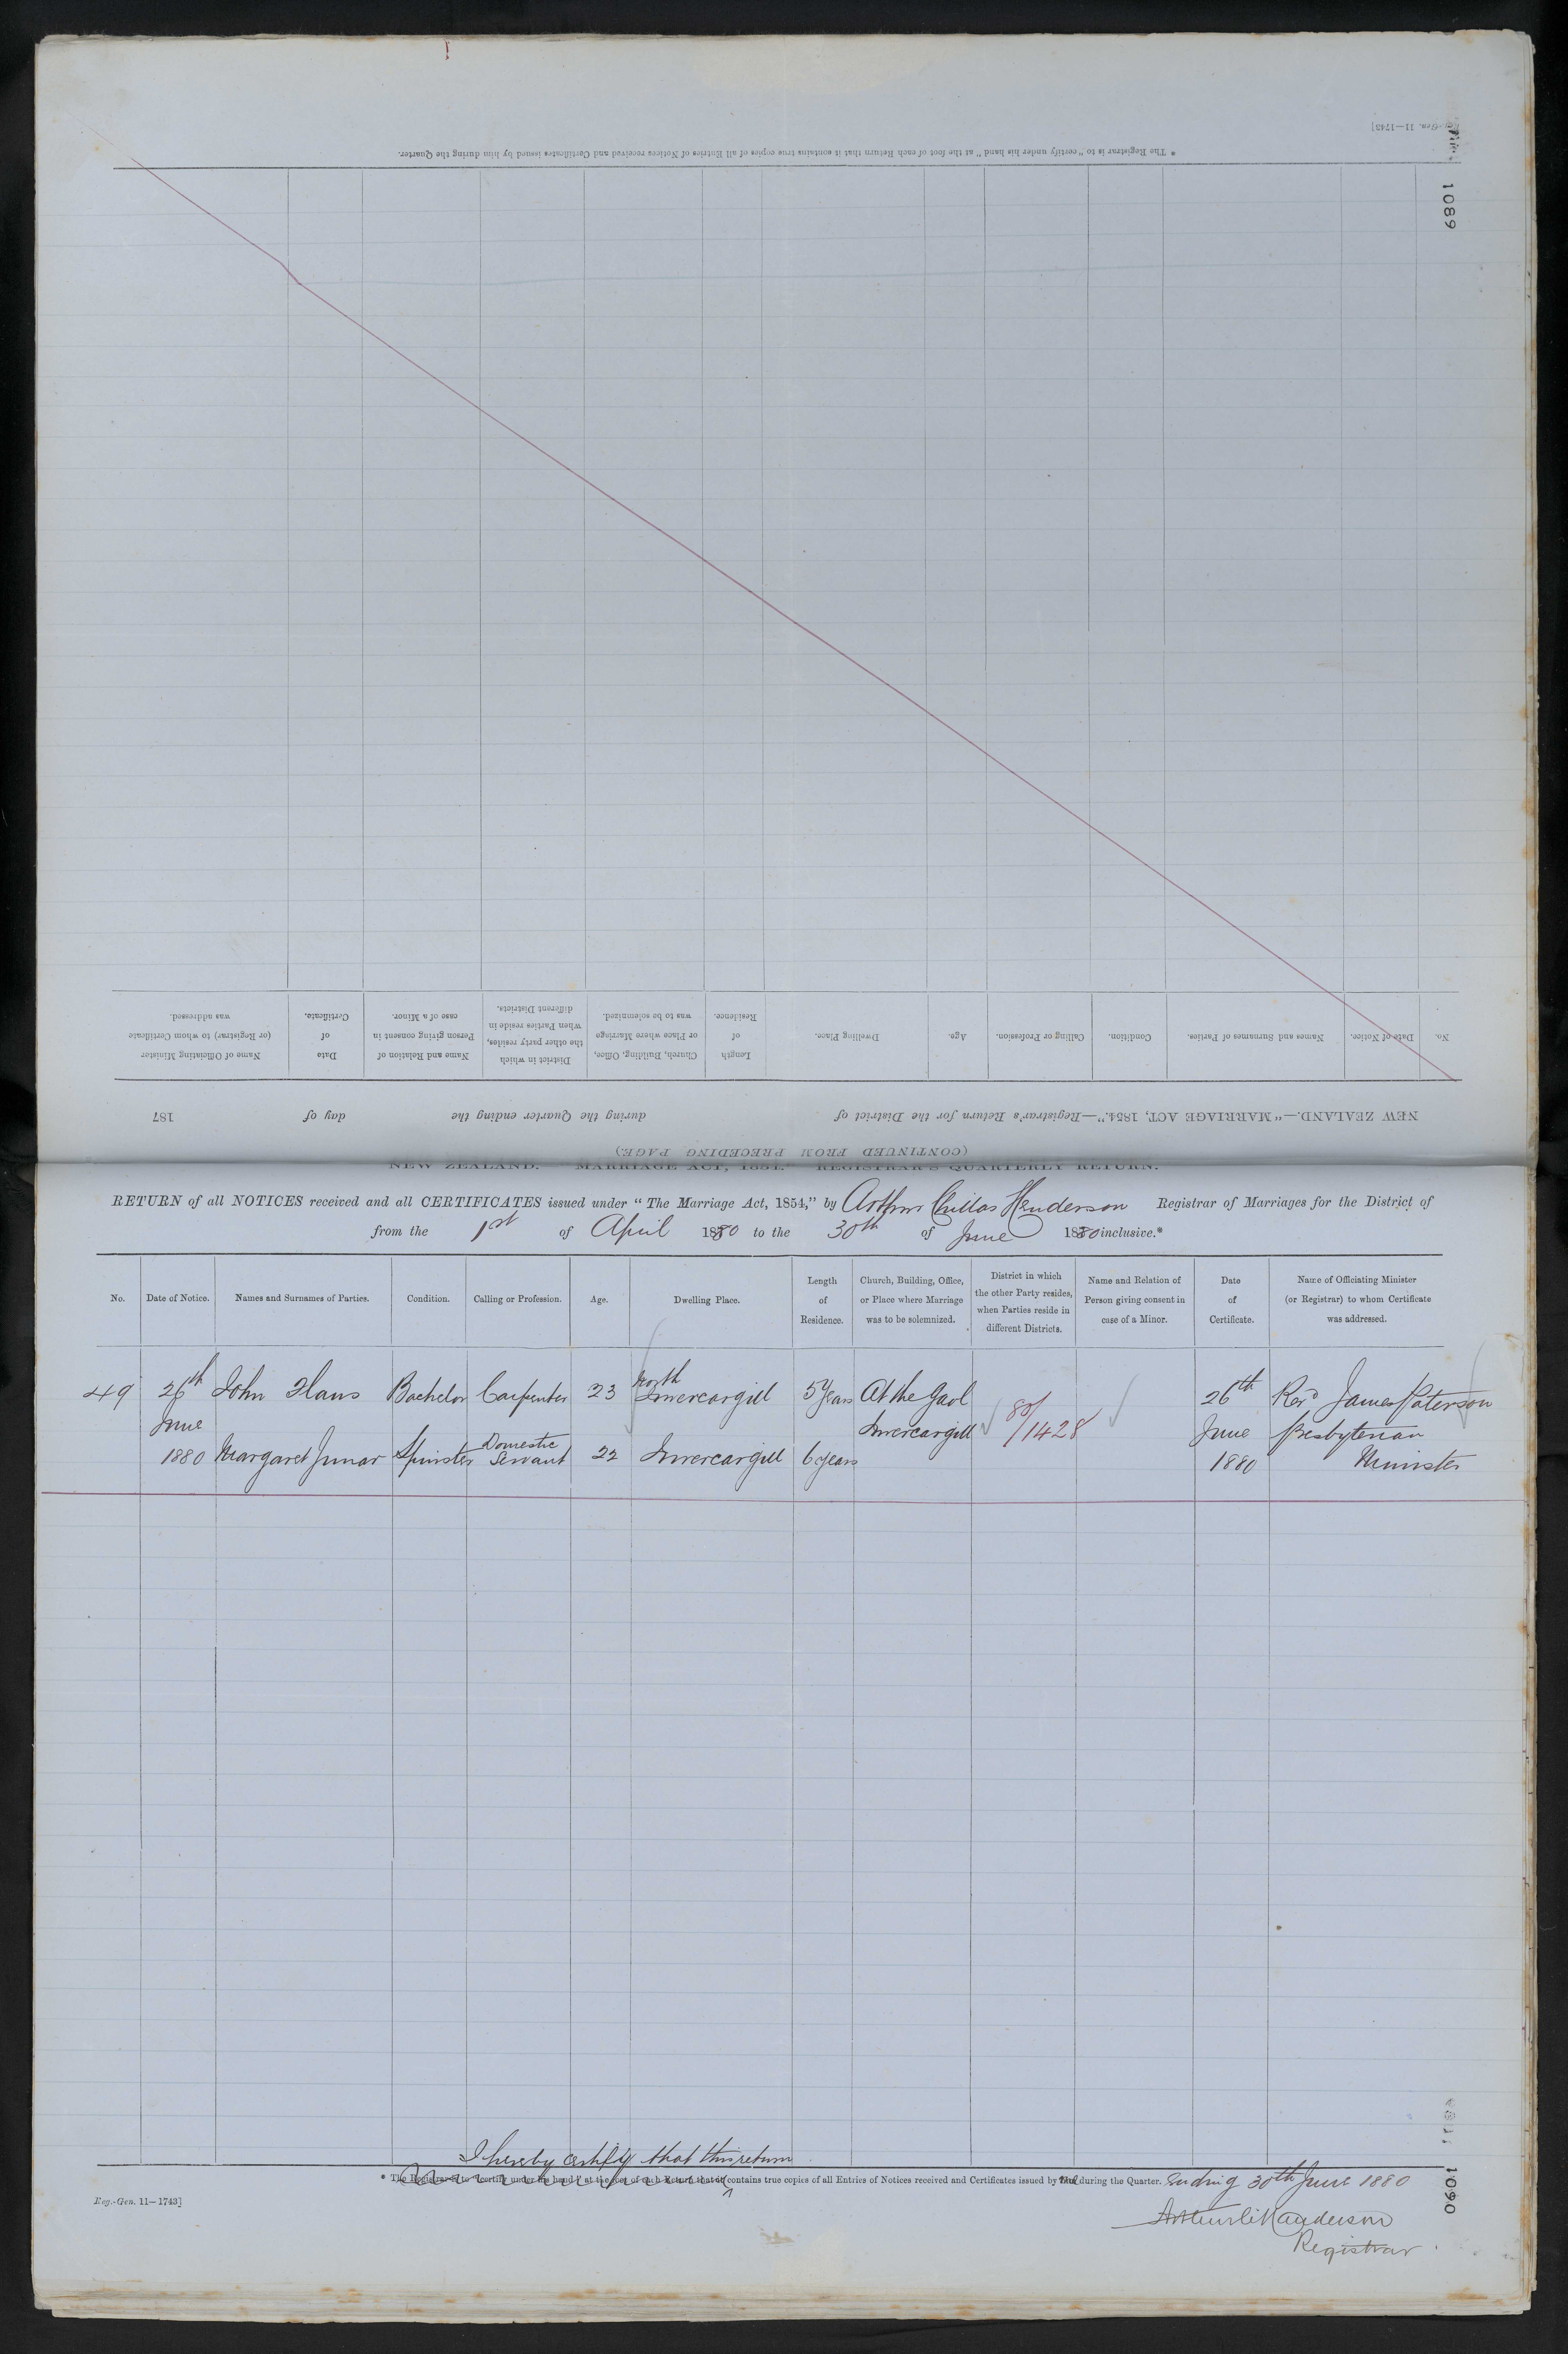 Reg.-Gen. 11—1743]
* The Registrar is to "certify under his hand" at the foot of each Return that it contains true copies of all Entries of Notices received and Certificates issued by him during the Quarter.
1089
No.
Date of Notice.
Names and Surnames of Parties.
Condition.
Calling or Profession.
Age.
Dwelling Place.
Length of Residence.
Church, Building, Office, or Place where Marriage was to be solemnized.
District in which the other party resides, when Parties reside in different Districts.
Name and Relation of Person giving consent in case of a Minor.
Date of Certificate.
Name of Officiating Minister (or Registrar) to whom Certificate was addressed.
NEW ZEALAND.—"MARRIAGE ACT, 1854."—Registrar's Return for the District of during the Quarter ending the day of 187
(CONTINUED FROM PRECEDING PAGE)
NEW ZEALAND. "MARRIAGE ACT, 1854." REGISTRAR'S QUARTERLY RETURN.
RETURN of all NOTICES received and all CERTIFICATES issued under "The Marriage Act, 1854," by Arthur Chillas Henderson Registrar of Marriages for the District of
from the 1st of April 1880 to the 30th of June 1880 inclusive.*
No.
Date of Notice.
Names and Surnames of Parties.
Condition.
Calling or Profession.
Age.
Dwelling Place.
Length of Residence.
Church, Building, Office, or Place where Marriage was to be solemnized.
District in which the other Party resides, when Parties reside in different Districts.
Name and Relation of Person giving consent in case of a Minor.
Date of Certificate.
Name of Officiating Minister (or Registrar) to whom Certificate was addressed.
49 26th John Bachelor Carpenter 23 North Invercargill 5 Years At the Gaol 26th Revd James Paterson
June Invercargill 80/1428 June Presbyterian
1880 Margaret Spinster Domestic Servant 22 Invercargill 6 years 1880 Minister
I hereby certify that this return
* The Registrar is to "certify under his hand" at the foot of each Return that it contains true copies of all Entries of Notices received and Certificates issued by me during the Quarter. ending 30th June 1880
Reg.-Gen. 11—1743]
Arthur C Henderson
Registrar.
1090